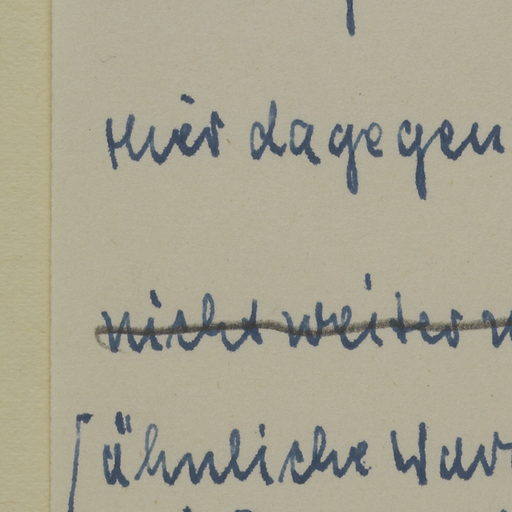 Hier dagegen
nicht weiter
[ähnliche